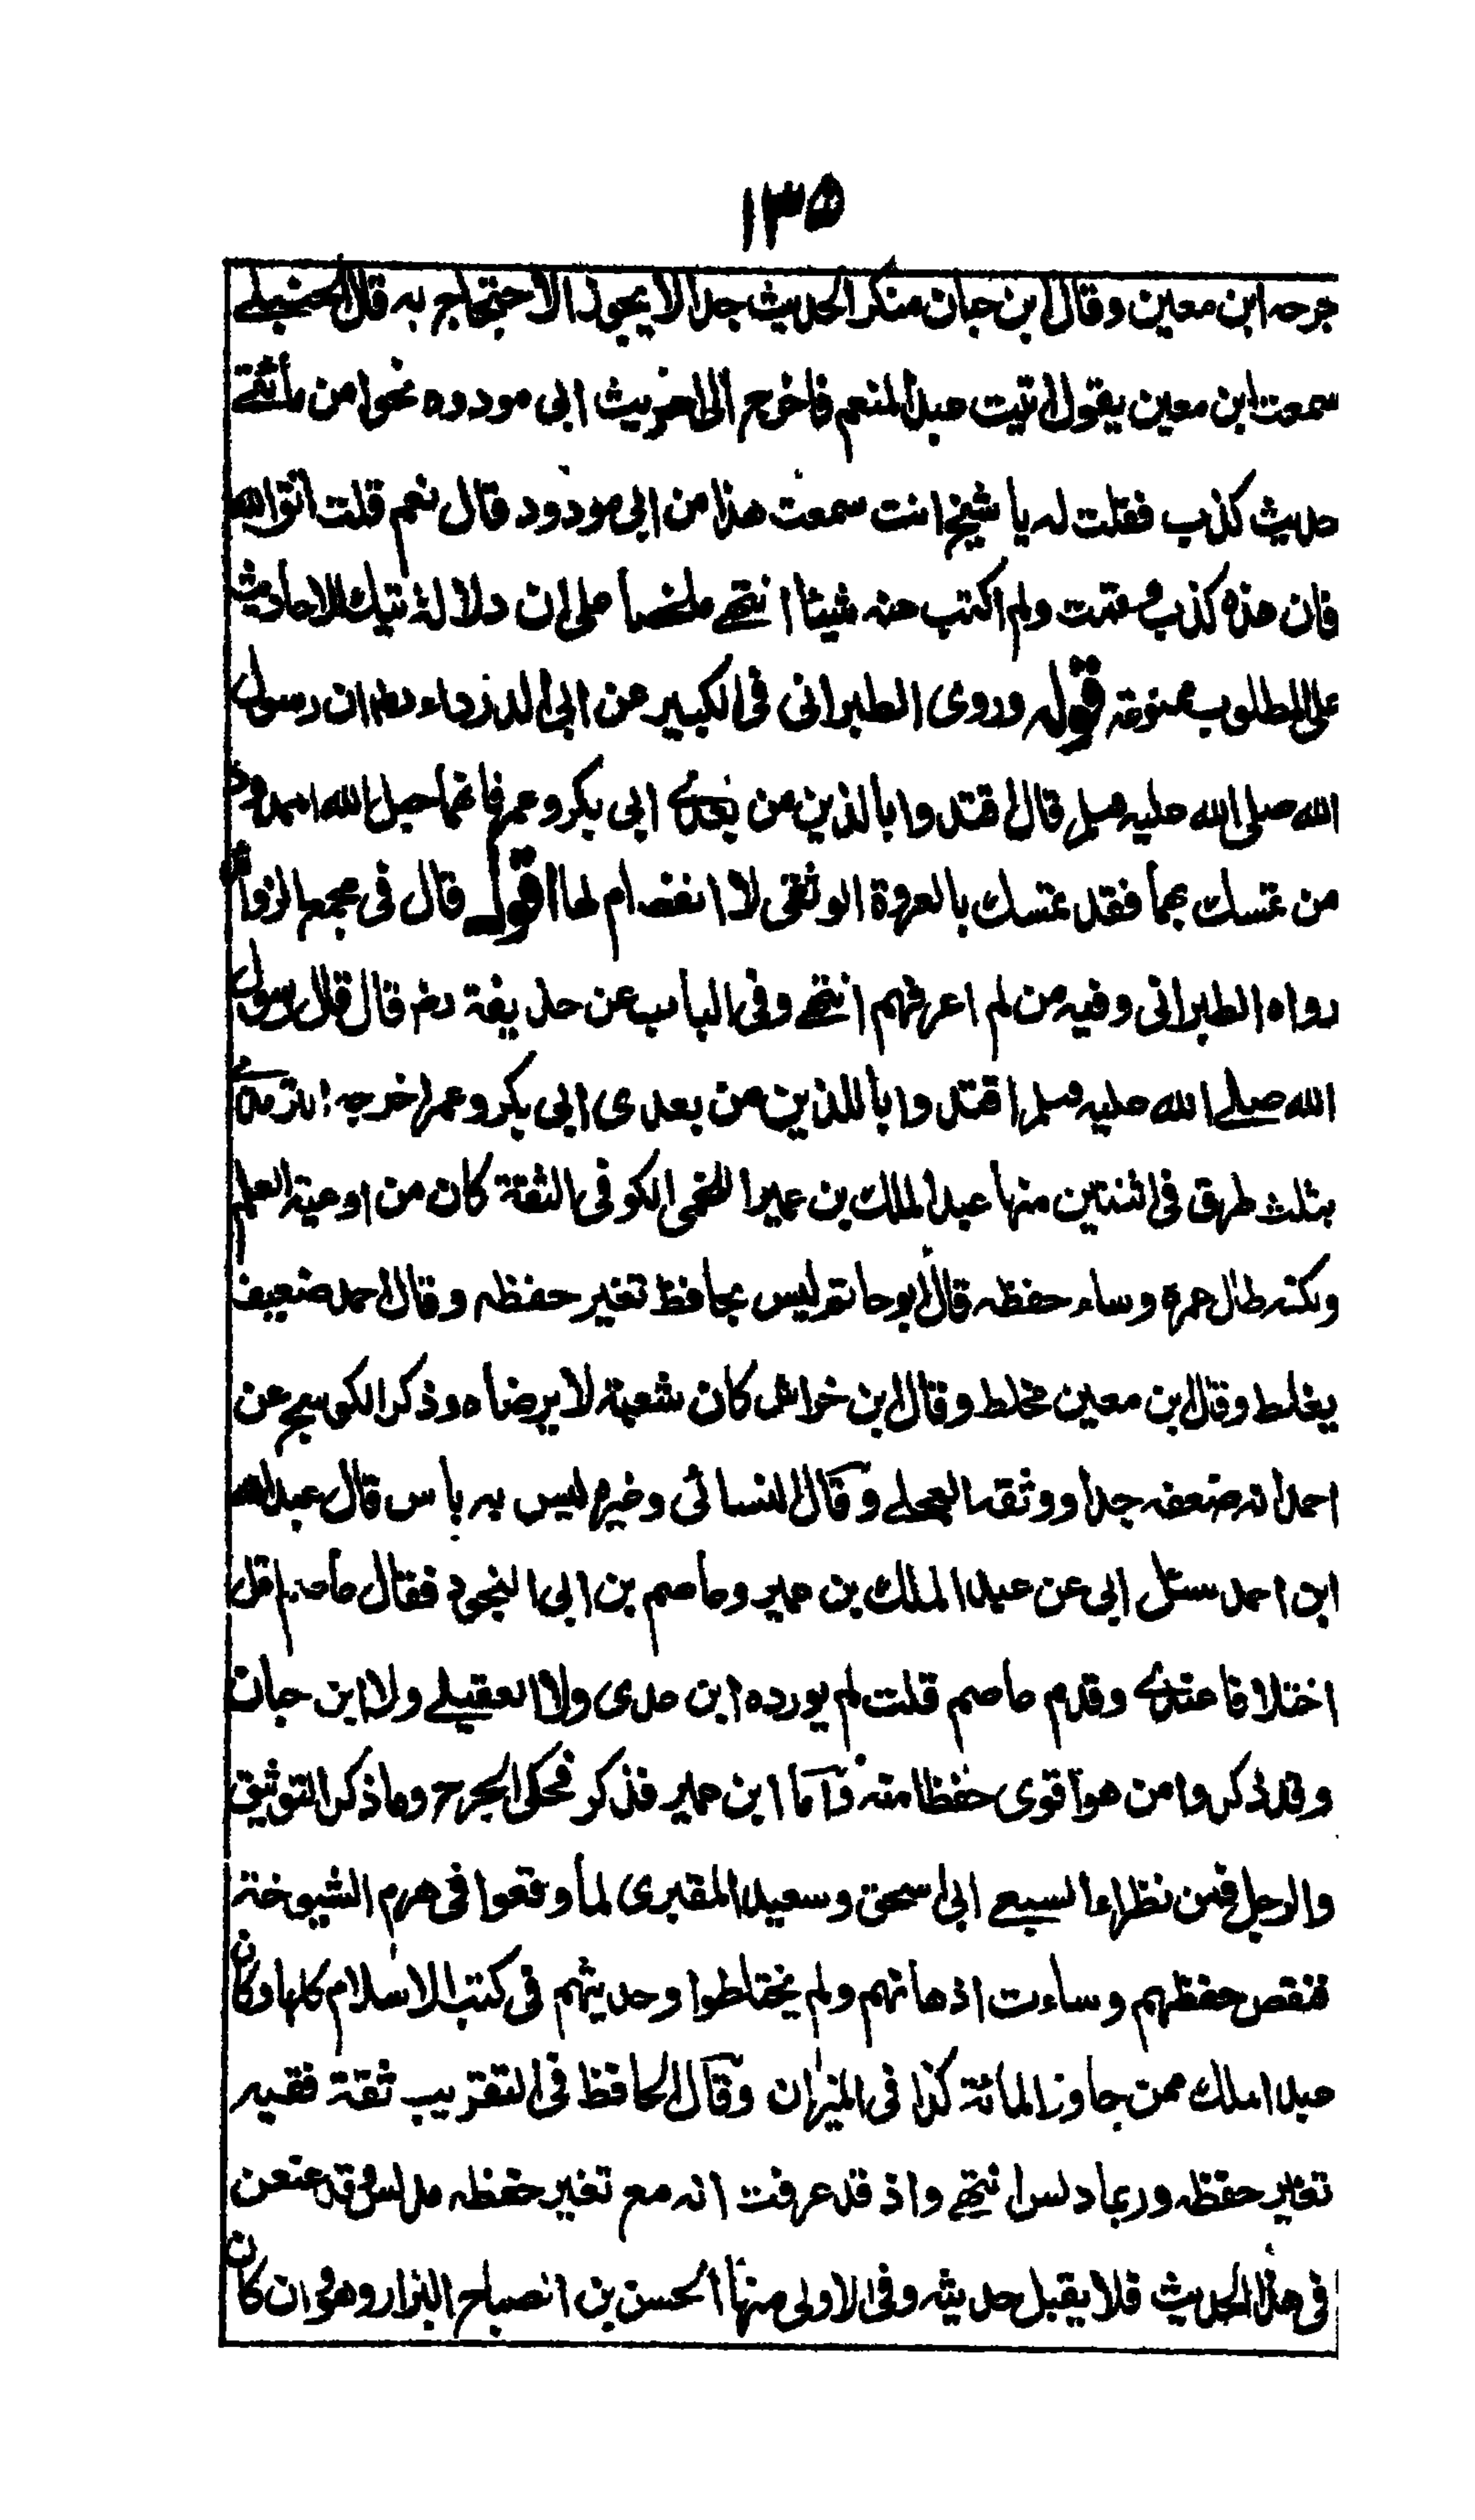 ١٣٥
جرحه ابن معين وقال ابن حبان منكر الحديث جدا لا يجوز الاحتجاج به قال الحنبلے
سمعت ابن معين يقول اتيت عبد المنعم فاخرج الى احاديث ابى مودود نحوا من مأتے
حديث كذب فقلت له يا شيخ انت سمعت هذا من ابى مودود قال نعم قلت اتق الله
فان هذه كذب وقمت ولم اكتب عنه شيئا انتهے ملخصا على ان دلالة تيك الاحاديث
على المطلوب ممنوعة قوله وروى الطبرانى فى الكبير عن ابى الدرداء رض ان رسول
الله صلى الله عليه وسلم قال اقتدوا بالذين من بعدے ابى بكر وعمر فانهما حبل الله الممدود
من تمسك بهما فقد تمسك بالعروة الوثقى لا انفصام لها اقول قال فى مجمع الزوائد
رواه الطبرانى وفيه من لم اعرفهم انتهے وفى الباب عن حذيفة رض قال قال رسول
الله صلے الله عليه وسلم اقتدوا باللذين من بعدى ابى بكر وعمر اخرجه الترمذے
بثلث طرق فى اثنتين منها عبد الملك بن عمير اللخمى الكوفى الثقة كان من اوعية العلم
ولكنه طال عمره وساء حفظه قال ابو حاتم ليس بحافظ تغير حفظه وقال احمد ضعيف
يغلط وقال ابن معين مخلط وقال ابن خراش كان شعبة لا يرضاه وذكر الكوسج عن
احمد انه ضعفه جدا ووثقه العجلے وقال النسائى وغيره ليس به باس قال عبد الله
ابن احمد سئل ابى عن عبد الملك بن عمير وعاصم بن ابى النجود فقال عاصم اقل
اختلافا عندے وقدم عاصم قلت لم يورده ابن عدى ولا العقيلے ولا ابن حبان
وقد ذكروا من هو اقوى حفظا منه واما ابن عمير فذكر فحكى الجرح وما ذكر التوثيق
والرجل فمن نظراء السبيعے ابى اسحق وسعيد المقبرى لما وقعوا فى هرم الشيوخة
فنقص حفظهم وساءت اذهانهم ولم يختلطوا وحديثهم فى كتب الاسلام كلها وكان
عبد الملك ممن جاوز المائة كذا فى الميزان وقال الحافظ فى التقريب ثقة فقيه
تغير حفظه وربما دلس انتهے واذ قد عرفت انه مع تغير حفظه مدلس وقد عنعن
فى هذا الحديث فلا يقبل حديثه وفى الاولى منها الحسن بن الصباح البزار وهو وان كان